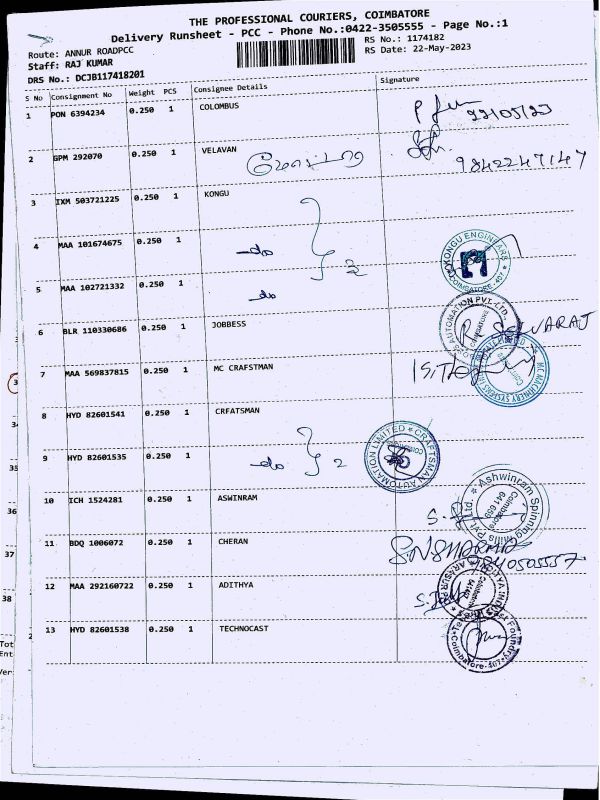 THE PROFESSIONAL COURIERS, COIMBATORE
Delivery Runsheet - PCC - Phone No.:0422-3505555 - Page No.:1
Route: ANNUR ROADPCC
RS No.: 1174182
Staff: RAJ KUMAR
RS Date: 22-May-2023
DRS No.: DCJB117418201
S No Consignment No Weight PCS Consignee Details Signature
1 PON 6394234 0.250 1 COLOMBUS
22/05/23
2 GPM 292070 0.250 1 VELAVAN
9842247147
3 IXM 503721225 0.250 1 KONGU
4 MAA 101674675 0.250 1 -do
KONGU ENGINEERS COIMBATORE - 407
5 MAA 102721332 0.250 1 do
6 BLR 110330686 0.250 1 JOBBESS
AUTOMATION PVT. LTD. COIMBATORE
R SELVARAJ
7 MAA 569837815 0.250 1 MC CRAFSTMAN
MC MACHINERY SYSTEMS
8 HYD 82601541 0.250 1 CRFATSMAN
9 HYD 82601535 0.250 1 -do 2
CRAFTSMAN AUTOMATION LIMITED
10 ICH 1524281 0.250 1 ASWINRAM
Ashwinram Spinning Mills Pvt. Ltd. Coimbatore 641 659
11 BDQ 1006072 0.250 1 CHERAN
12 MAA 292160722 0.250 1 ADITHYA
13 HYD 82601538 0.250 1 TECHNOCAST
Coimbatore-407
35
36
37
38